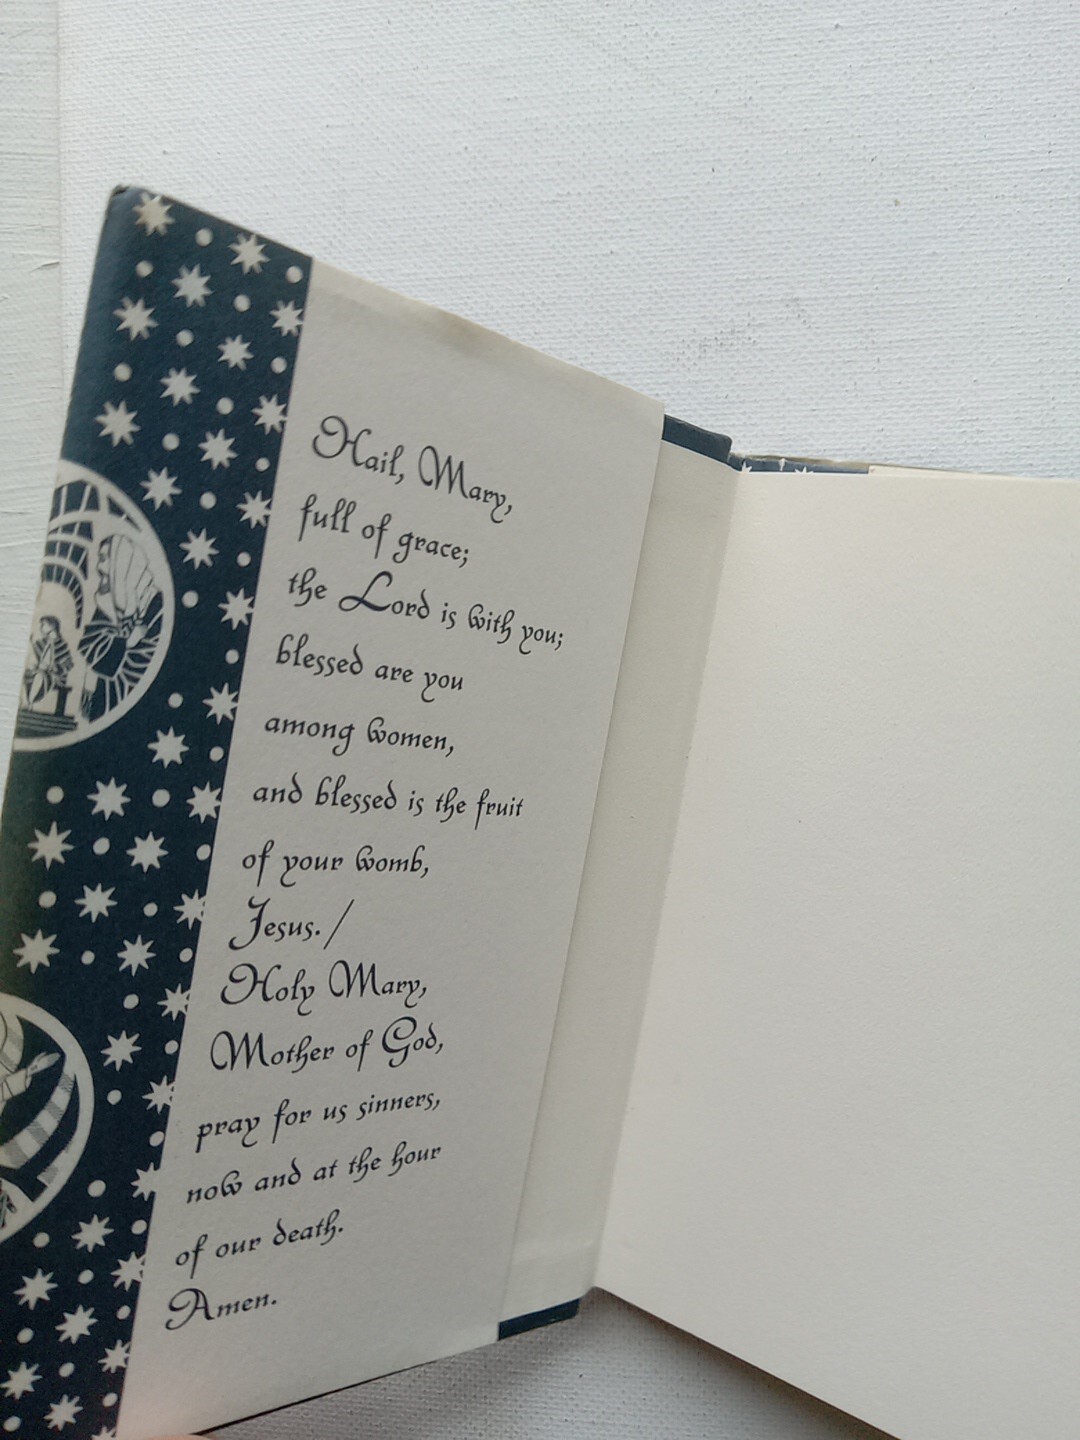 Hail, Mary,
full of grace;
the Lord is with you;
blessed are you
among women,
and blessed is the fruit
of your womb,
Jesus. /
Holy Mary,
Mother of God,
pray for us sinners,
now and at the hour
of our death.
Amen.